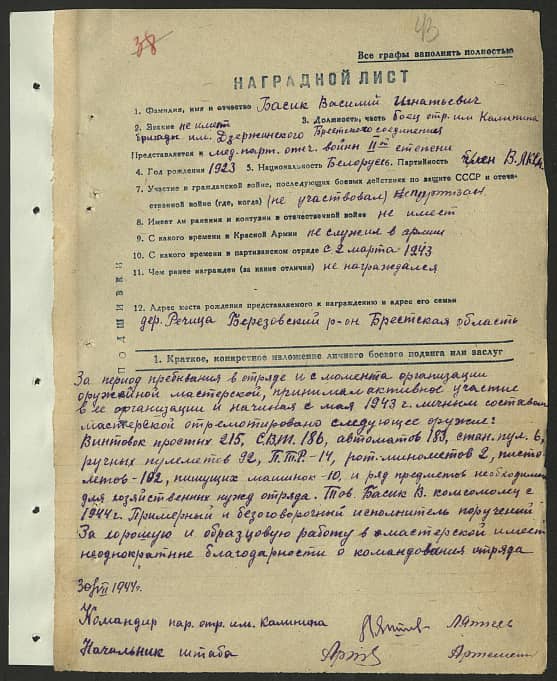 38
43
Все графы заполнять полностью
НАГРАДНОЙ ЛИСТ
1. Фамилия, имя и отчество Басик Василий Игнатьевич
2. Звание не имеет 3. Должность, часть боец отр. им Калинина
бригады им. Дзержинского Брестского соединения
Представляется к мед. парт. отеч. войны IIой степени
4. Год рождения 1923 5. Национальность Белорусь. Партийность член В.ЛКСМ
7. Участие в гражданской войне, последующих боевых действиях по защите СССР и отече-
ственной войне (где, когда) (не участвовал)
8. Имеет ли ранения и контузии в отечественной войне не имеет
9. С какого времени в Красной Армии не служил в армии
10. С какого времени в партизанском отряде с 2 марта 1943
11. Чем ранее награжден (за какие отличия) не награждался
ПОДШИВКИ
12. Адрес места рождения представляемого к награждению и адрес его семьи
дер. Речица Березовский р-он Брестская область
1. Краткое, конкретное изложение личного боевого подвига или заслуг
За период пребывания в отряде и с момента организации
оружейной мастерской, принимал активное участие
в ее организации и начиная с мая 1943 г. личным составом
мастерской отремонтировано следующее оружие:
Винтовок простых 215, С.В.Т. 186, автоматов 183, стан. пул. 6,
ручных пулеметов 92, П.Т.Р.-14, рот. минометов 2, писто-
летов-102, пишущих машинок-10, и ряд предметов необходимых
для хозяйственных нужд отряда. Тов. Басик В. комсомолец с
1944 г. Примерный и безоговорочный исполнитель поручений
За хорошую и образцовую работу в мастерской имеет
неоднократные благодарности о командования отряда
30/VII 1944г.
Командир пар. отр. им. Калинина
Начальник штаба